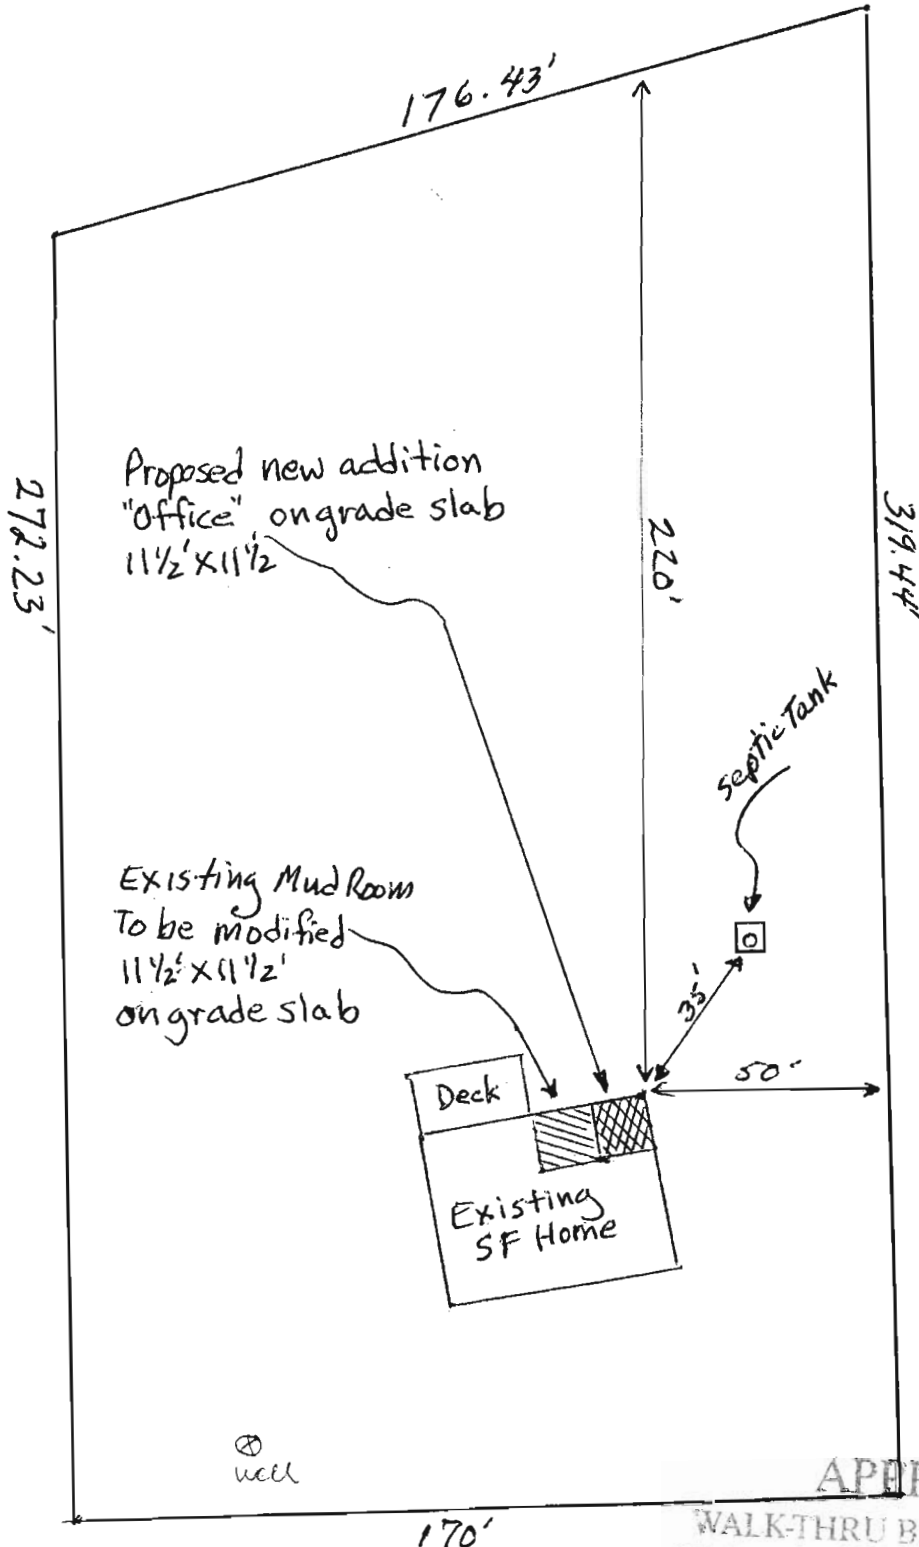 176.43'
Proposed new addition
"Office" on grade slab
11½' X 11½'
272.23'
220'
319.44"
Septic Tank
Existing Mud Room
To be modified
11½' X 11½'
on grade slab
35'
50'
Deck
Existing
SF Home
well
170'
WALK-THRU B